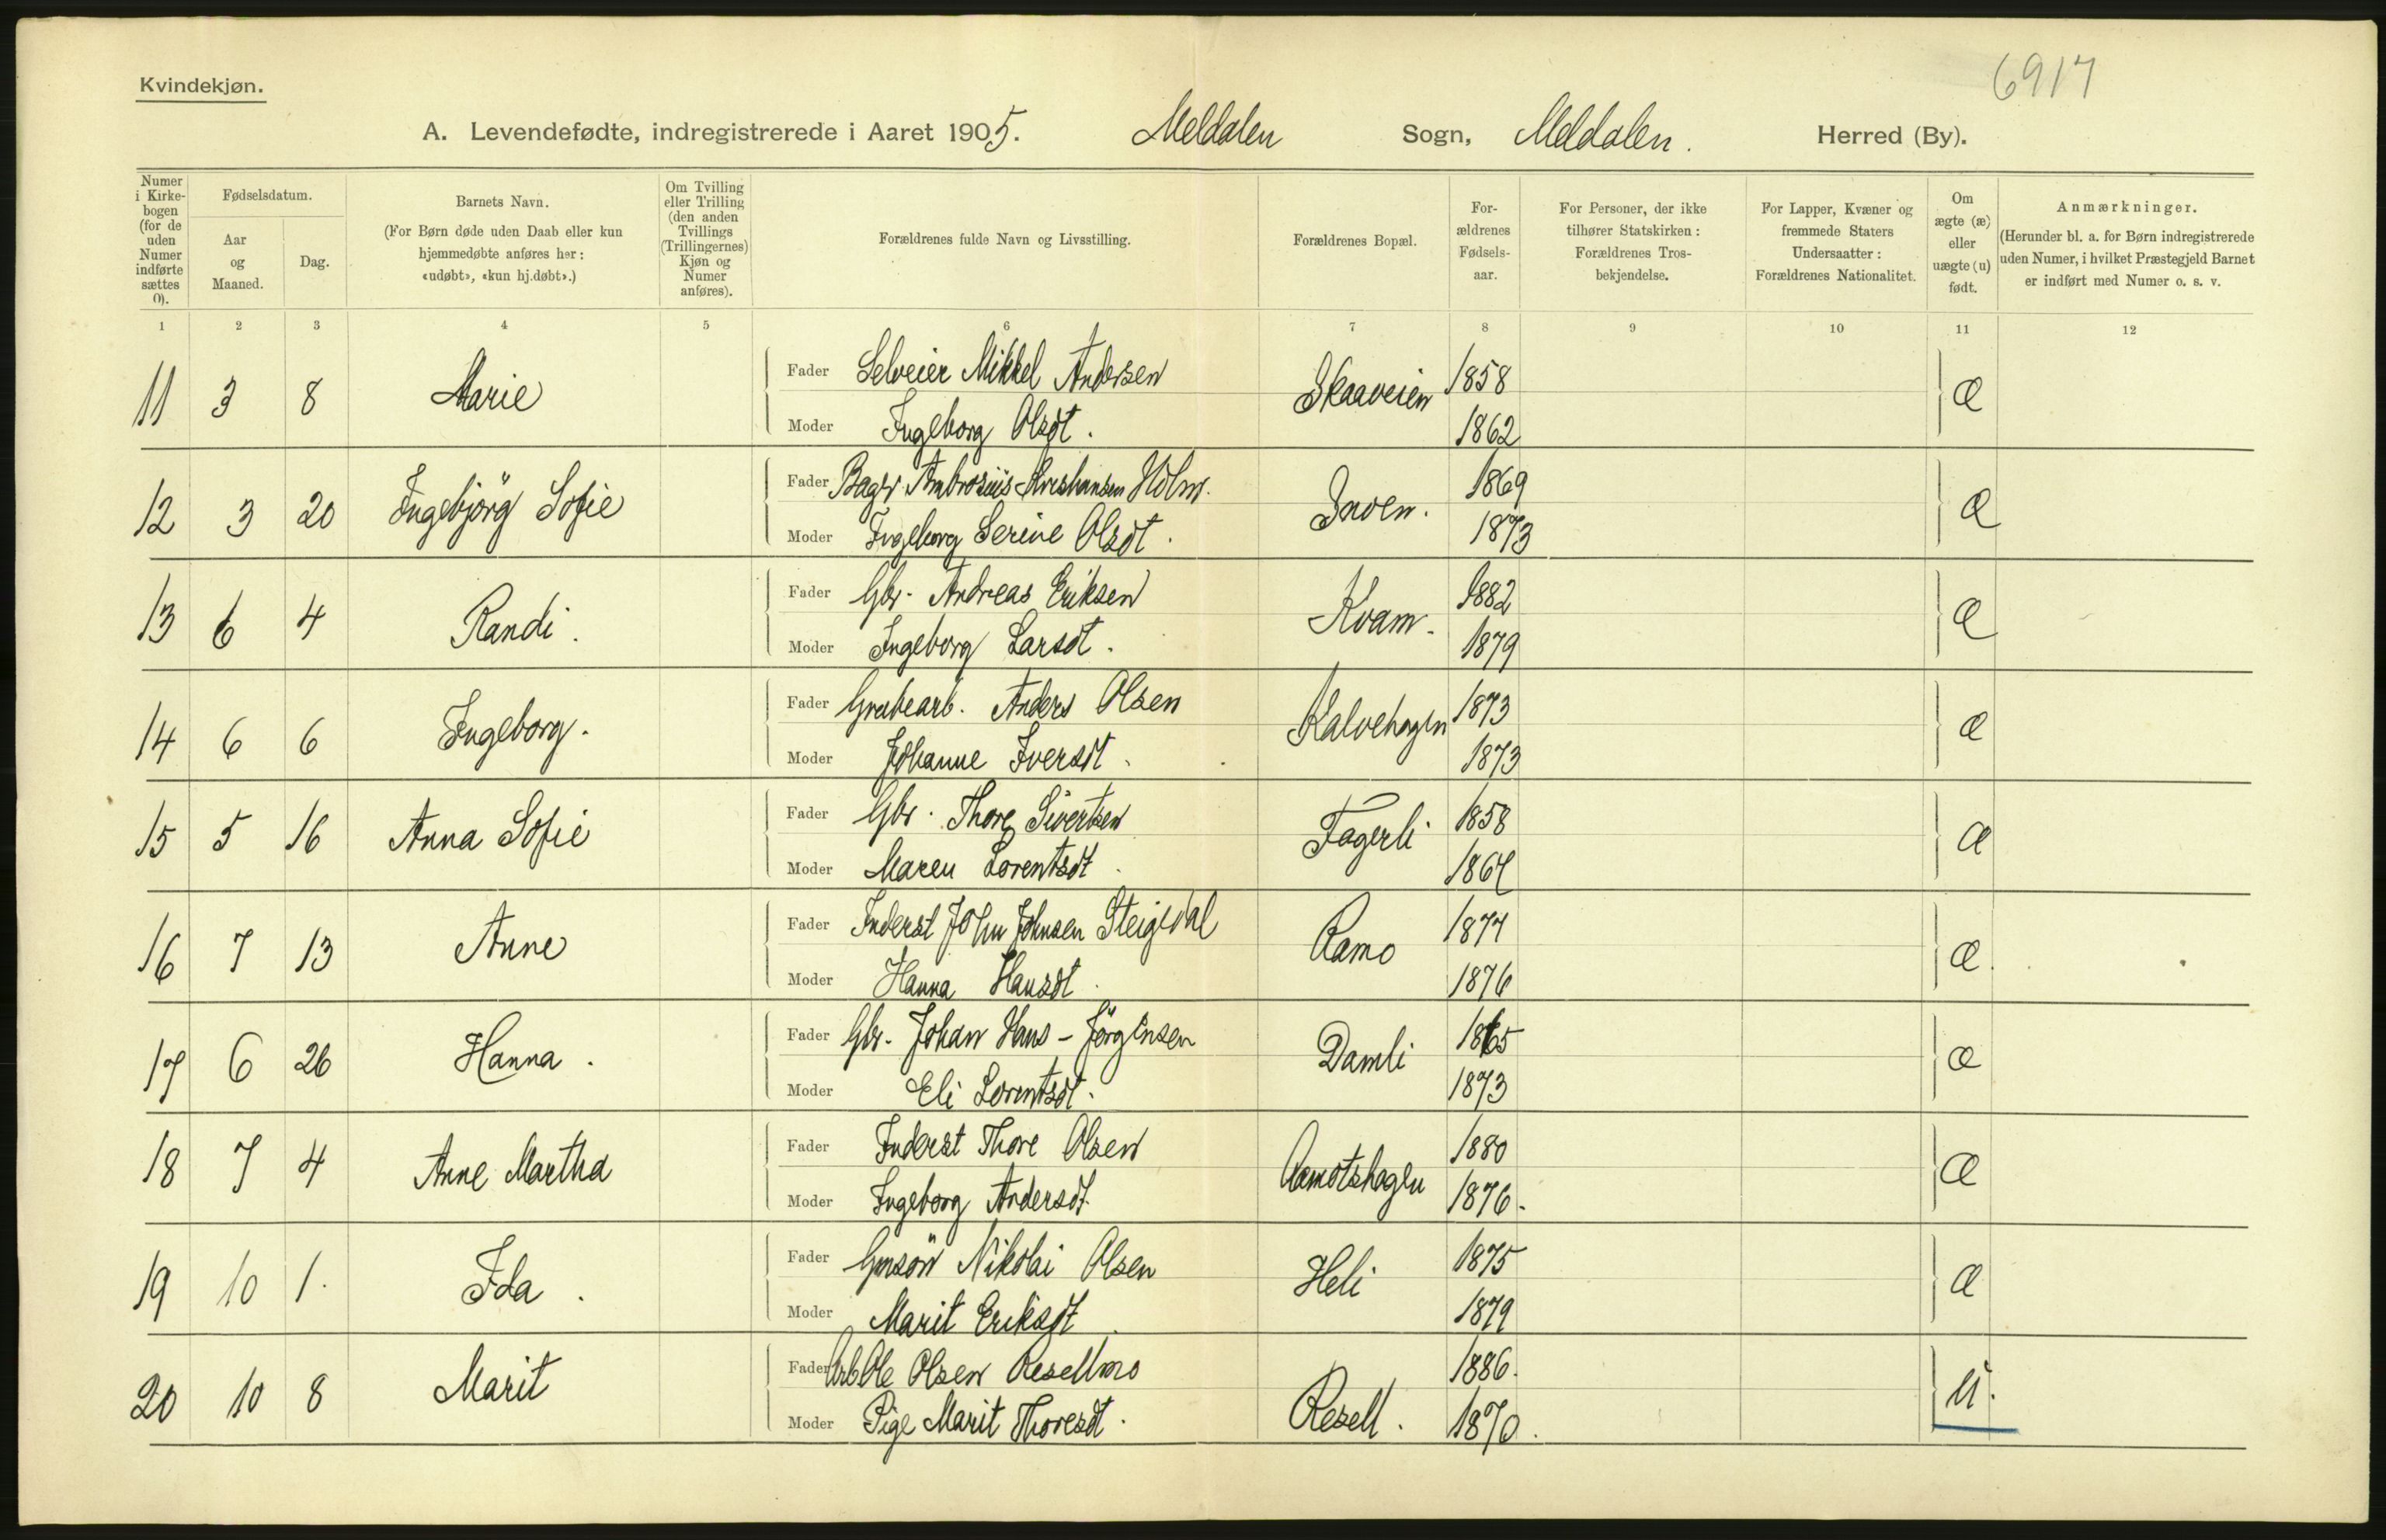 6917
Kvindekjøn.
A. Levendefødte, indregistrerede i Aaret 1905. Meldalen Sogn, Meldalen. Herred (By).
Numer i Kirkebogen (for de uden Numer indførte sættes 0).
Fødselsdatum.
Aar og Maaned.
Dag.
Barnets Navn.
(For Børn døde uden Daab eller kun hjemmedøbte anføres her: «udøbt», «kun hj.døbt».)
Om Tvilling eller Trilling (den anden Tvillings (Trillingernes) Kjøn og Numer anføres).
Forældrenes fulde Navn og Livsstilling.
Forældrenes Bopæl.
Forældrenes Fødselsaar.
For Personer, der ikke tilhører Statskirken: Forældrenes Trosbekjendelse.
For Lapper, Kvæner og fremmede Staters Undersaatter: Forældrenes Nationalitet.
Om ægte (æ) eller uægte (u) født.
Anmærkninger.
(Herunder bl. a. for Børn indregistrerede uden Numer, i hvilket Præstegjeld Barnet er indført med Numer o. s. v.
1 2 3 4 5 6 7 8 9 10 11 12
11 3 8 Marie Fader Selveier Mikkel Andersen Skaaveien 1858 æ
Moder Ingeborg Olsdt. 1862
12 3 20 Ingebjörg Sofie Fader Bager Ambrosius Kristiansen Holm. 1869 æ
Moder Ingeborg Serine Olsdt. 1873
13 6 4 Randi. Fader Gbr. Andreas Eriksen Kvam. 1882 æ
Moder Ingeborg Larsdt. 1879
14 6 6 Ingeborg. Fader Grubearb. Anders Olsen Kalvehagen 1873 æ
Moder Johanne Iversdt. 1873
15 5 16 Anna Sofie Fader Gbr. Thore Sivertsen Fagerli 1858 æ
Moder Maren Lorentsdt.
16 7 13 Anne Fader Inderst John Johnsen Steigedal Ramo 1877 æ.
Moder Hanna Hansdt. 1876
17 6 26 Hanna. Fader Gbr. Johan Hans-Jörgensen Damli 1865 æ
Moder Eli Lorentsdt. 1873
18 7 4 Anne Martha Fader Inderst Thore Olsen Aamotshagen 1880 æ
Moder Ingeborg Andersdt. 1876.
19 10 1. Ida. Fader Gmsön Nikolai Olsen Heli 1875 æ
Moder Marit Eriksdt. 1879
20 10 8 Marit Fader Arb Ole Olsen Resellmo Resell. 1886. u.
Moder Pige Marit Thoresdt. 1870.